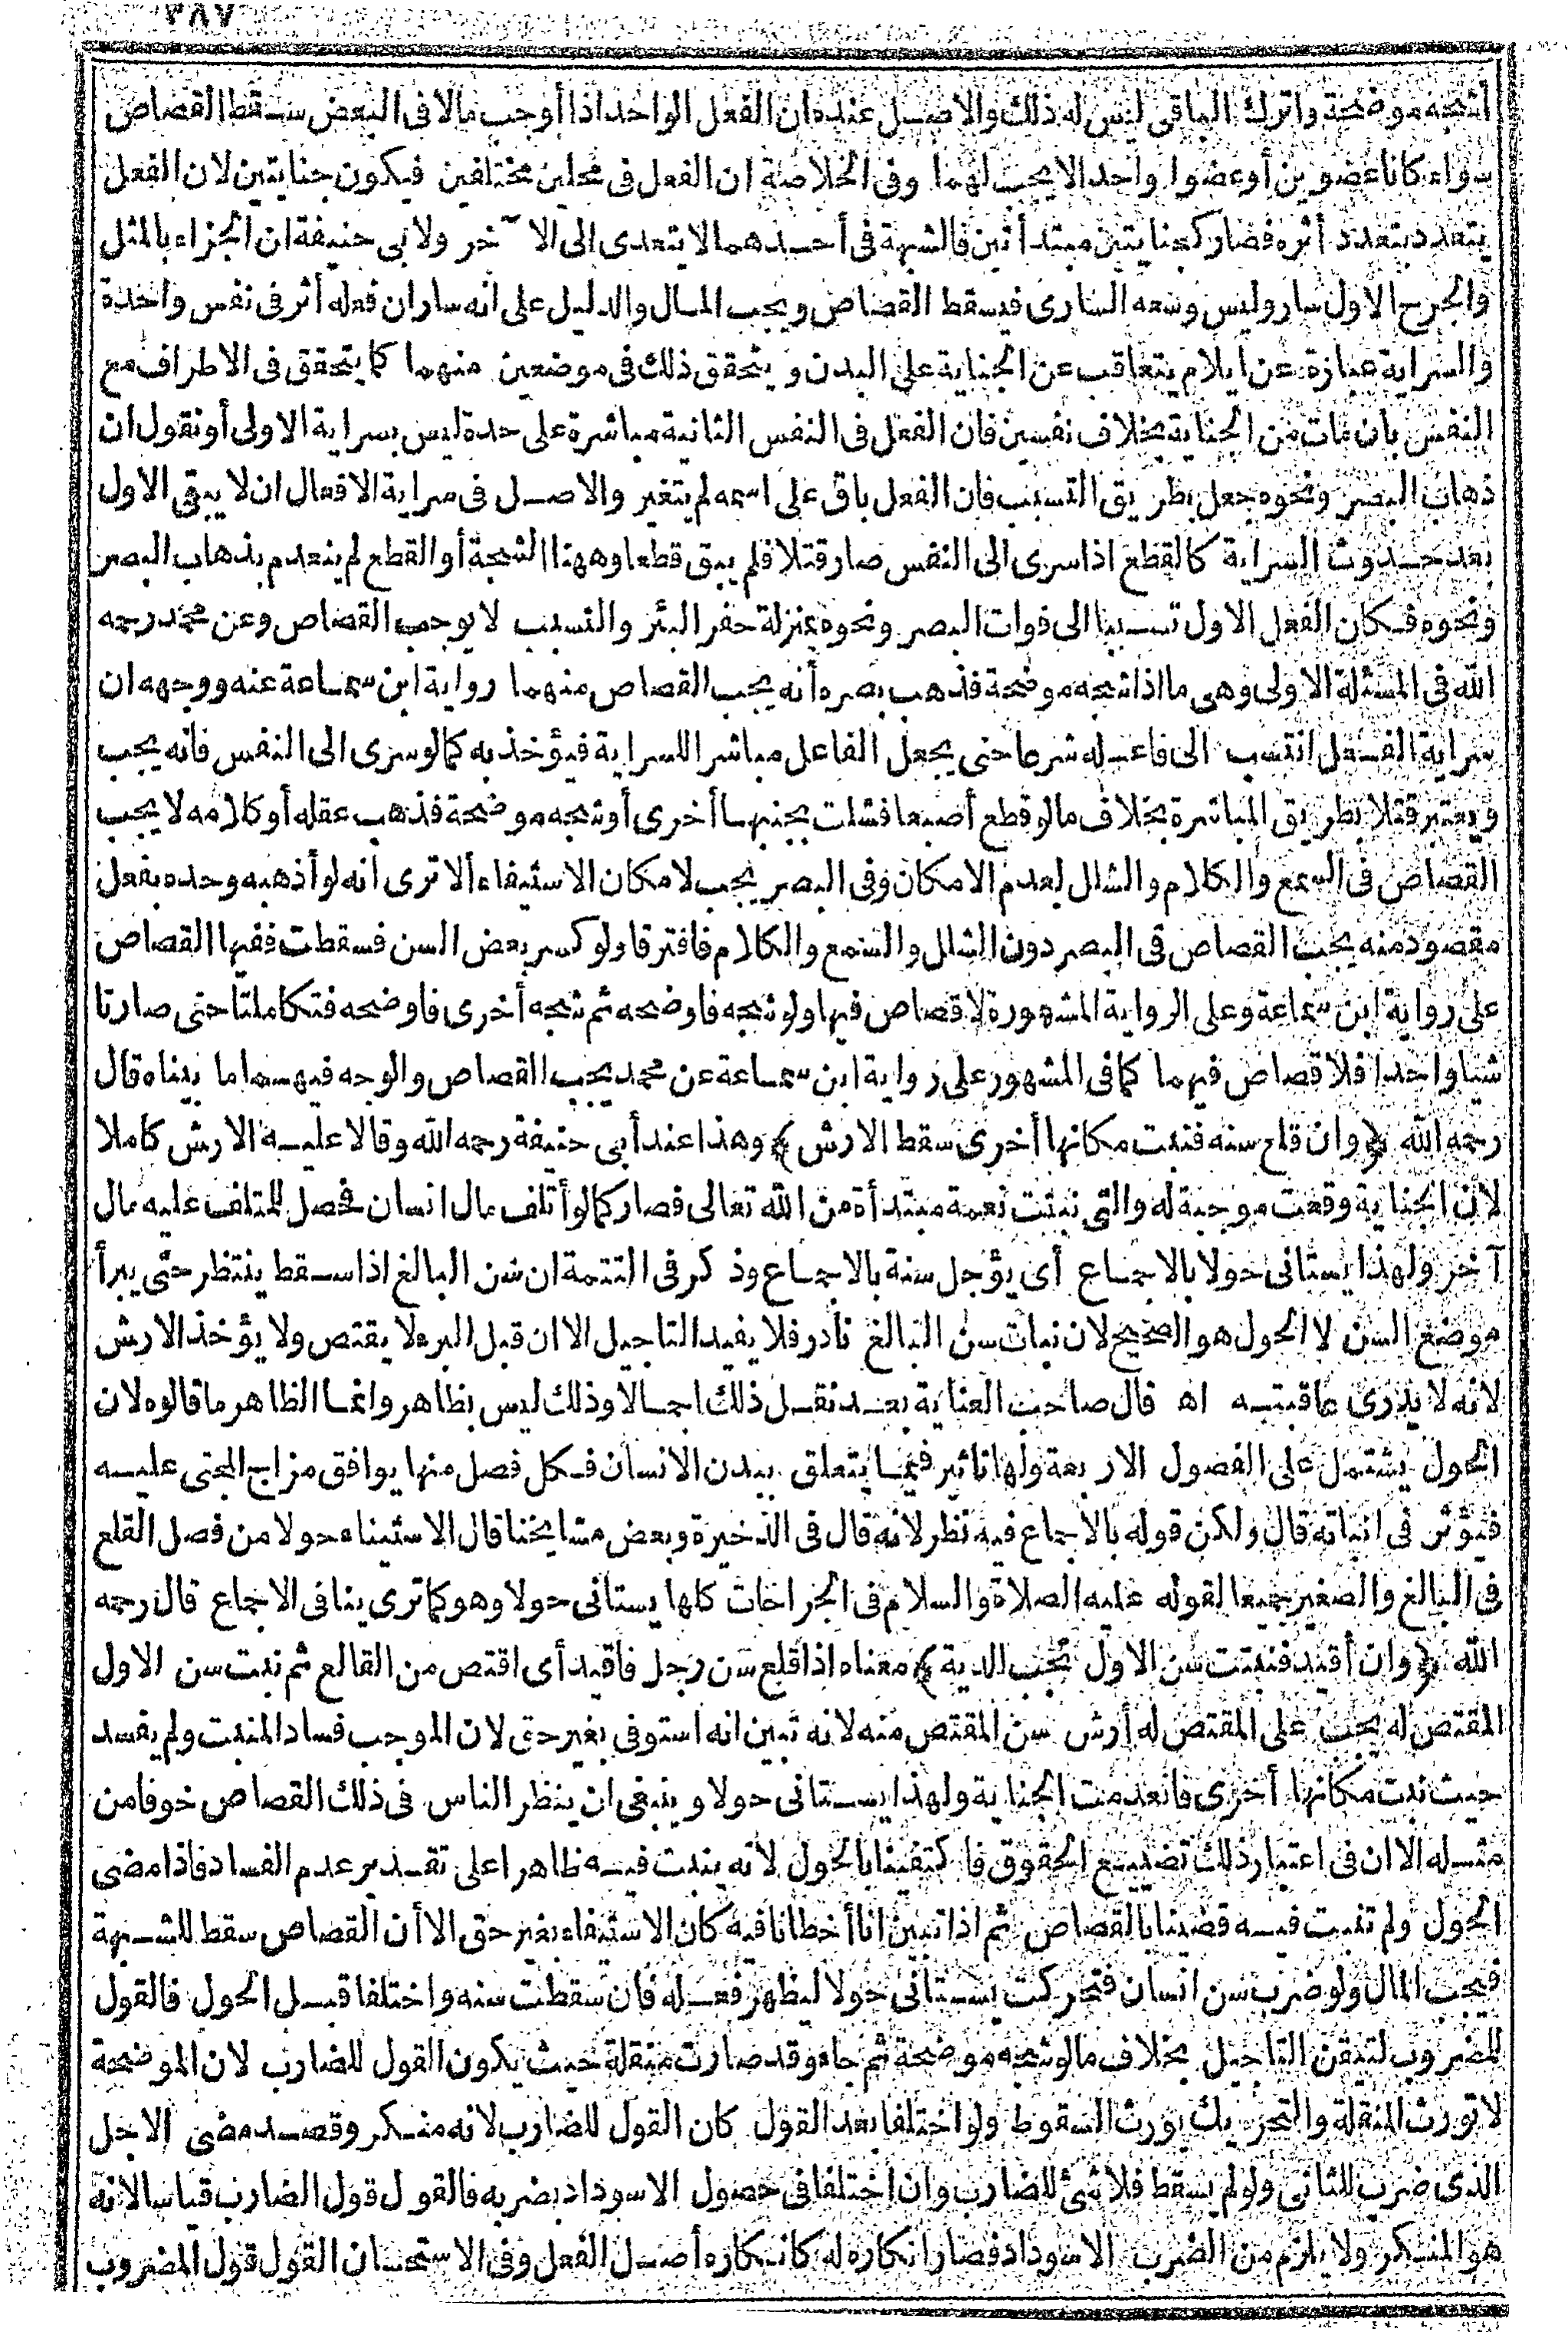 ٣٨٧
أشجه موضحة واترك الباقي ليس له ذلك والاصل عنده ان الفعل الواحد اذا أوجب مالا في البعض سقط القصاص
سواء كانا عضوين أو عضوا واحدا لا يجب لهما وفي الخلاصة ان الفعل في محلين مختلفين فيكون جنايتين لان الفعل
يتعدد بتعدد أثره فصار كجنايتين مبتدأتين فالشبهة في أحدهما لا يتعدى الى الآخر ولابي حنيفة ان الجزاء بالمثل
والجرح الاول سار وليس وسعه السارى فيسقط القصاص ويجب المال والدليل على انه سار ان فعله أثر في نفس واحدة
والسراية عبارة عن ايلام يتعاقب عن الجناية على البدن ويتحقق ذلك في موضعين منهما كما يتحقق في الاطراف مع
النفس بان مات من الجناية بخلاف نفسين فان الفعل في النفس الثانية مباشرة على حدة ليس بسراية الاولى أو نقول ان
ذهاب البصر ونحوه جعل بطريق التسبب فان الفعل باق على اسمه لم يتغير والاصل في سراية الافعال ان لا يبقى الاول
بعد حدوث السراية كالقطع اذا سرى الى النفس صار قتلا فلم يبق قطعا وههنا الشجة أو القطع لم ينعدم بذهاب البصر
ونحوه فكان الفعل الاول تسببا الى فوات البصر ونحوه بمنزلة حفر البئر والتسبب لا يوجب القصاص وعن محمد رحمه
الله في المسئلة الاولى وهي ما اذا شجه موضحة فذهب بصره أنه يجب القصاص منهما رواية ابن سماعة عنه ووجهه ان
سراية الفعل انتسب الى فاعله شرعا حتى يجعل الفاعل مباشرا للسراية فيؤخذ به كما لو سرى الى النفس فانه يجب
ويعتبر قتلا بطريق المباشرة بخلاف ما لو قطع أصبعا فشلت بجنبها أخرى أو شجه موضحة فذهب عقله أو كلامه لا يجب
القصاص في السمع والكلام والشلل لعدم الامكان وفي البصر يجب لامكان الاستيفاء ألا ترى انه لو أذهبه وحده بفعل
مقصود منه يجب القصاص في البصر دون الشلل والسمع والكلام فافترقا ولو كسر بعض السن فسقطت ففيها القصاص
على رواية ابن سماعة وعلى الرواية المشهورة لا قصاص فيها ولو شجه فاوضحه ثم شجه أخرى فاوضحه فتكاملتا حتى صارتا
شيا واحدا فلا قصاص فيهما كما في المشهور على رواية ابن سماعة عن محمد يجب القصاص والوجه فيهما ما بيناه قال
رحمه الله ﴿وان قلع سنه فنبت مكانها أخرى سقط الارش﴾ وهذا عند أبي حنيفة رحمه الله وقالا عليه الارش كاملا
لان الجناية وقعت موجبة له والتي نبتت نعمة مبتدأة من الله تعالى فصار كما لو أتلف مال انسان فحصل للمتلف عليه مال
آخر ولهذا يستانى حولا بالاجماع أي يؤجل سنة بالاجماع وذكر في التتمة ان سن البالغ اذا سقط ينتظر حتى يبرأ
موضع السن لا الحول هو الصحيح لان نبات سن البالغ نادر فلا يفيد التاجيل الا ان قبل البرء لا يقتص ولا يؤخذ الارش
لانه لا يدرى عاقبته اه قال صاحب العناية بعد نقل ذلك اجمالا وذلك ليس بظاهر وانما الظاهر ما قالوه لان
الحول يشتمل على الفصول الاربعة ولها تاثير فيما يتعلق ببدن الانسان فكل فصل منها يوافق مزاج المجنى عليه
فيؤثر في انباته قال ولكن قوله بالاجماع فيه نظر لانه قال في الذخيرة وبعض مشايخنا قال الاستيناء حولا من فصل القلع
في البالغ والصغير جميعا لقوله عليه الصلاة والسلام في الجراحات كلها يستانى حولا وهو كما ترى ينافي الاجماع قال رحمه
الله ﴿وان أقيد فنبتت سن الاول تجب الدية﴾ معناه اذا قلع سن رجل فاقيد أي اقتص من القالع ثم نبت سن الاول
المقتص له يجب على المقتص له أرش سن المقتص منه لانه تبين انه استوفى بغير حق لان الموجب فساد المنبت ولم يفسد
حيث نبت مكانها أخرى فانعدمت الجناية ولهذا يستانى حولا وينبغي ان ينظر الناس في ذلك القصاص خوفا من
مثله الا ان في اعتبار ذلك تضييع الحقوق فاكتفينا بالحول لانه ينبت فيه ظاهرا على تقدير عدم الفساد فاذا مضى
الحول ولم تنبت فيه قضينا بالقصاص ثم اذا تبين انا أخطانا فيه كان الاستيفاء بغير حق الا أن القصاص سقط للشبهة
فيجب المال ولو ضرب سن انسان فتحركت يستانى حولا ليظهر فعله فان سقطت سنه واختلفا قبل الحول فالقول
للمضروب لتيقن التاجيل بخلاف ما لو شجه موضحة ثم جاء وقد صارت منقلة حيث يكون القول للضارب لان الموضحة
لا تورث المنقلة والتحريك يورث السقوط ولو اختلفا بعد القول كان القول للضارب لانه منكر وقصد مضى الاجل
الذى ضرب للثانى ولو لم يسقط فلا شئ للضارب وان اختلفا في حصول الاسوداد بضربه فالقول قول الضارب قياسا لانه
هو المنكر ولا يلزم من الضرب الاسوداد فصار انكاره له كانكاره أصل الفعل وفي الاستحسان القول قول المضروب